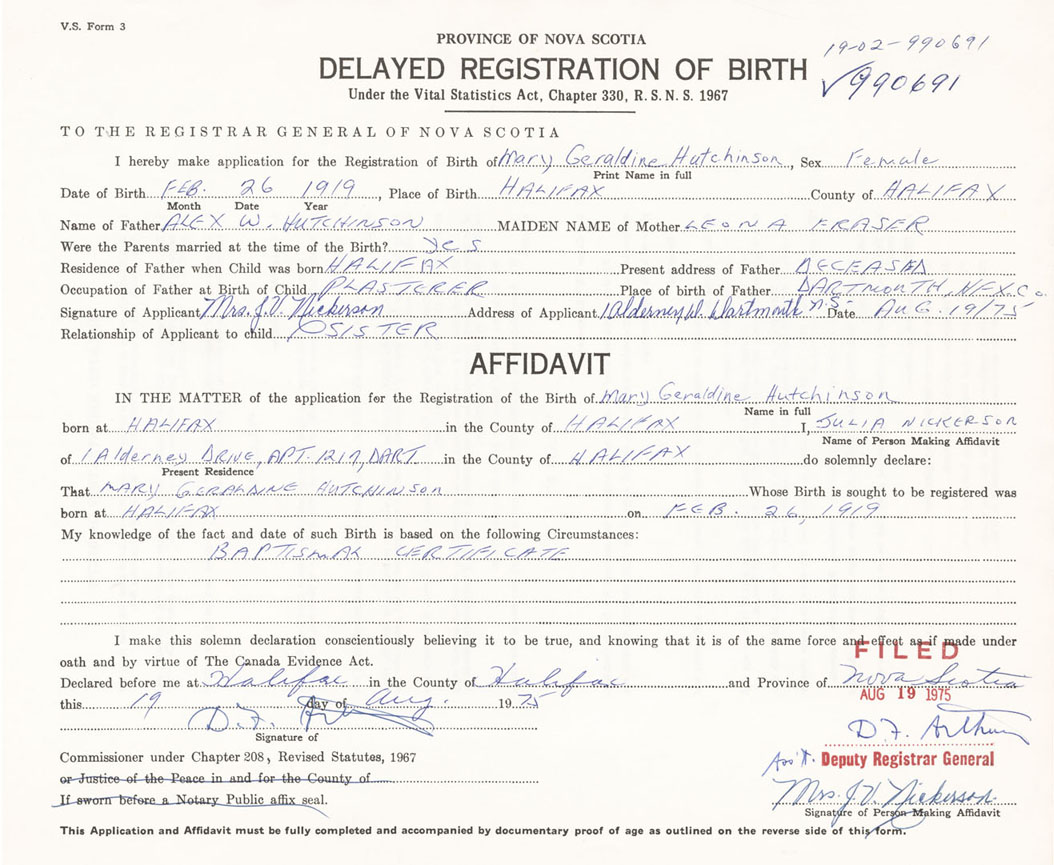 V.S. Form 3
PROVINCE OF NOVA SCOTIA
19-02-990691
DELAYED REGISTRATION OF BIRTH
√990691
Under the Vital Statistics Act, Chapter 330, R. S. N. S. 1967
TO THE REGISTRAR GENERAL OF NOVA SCOTIA
I hereby make application for the Registration of Birth of Mary Geraldine Hutchinson, Sex Female
Print Name in full
Date of Birth FEB. 26 1919, Place of Birth HALIFAX County of HALIFAX
Month Date Year
Name of Father ALEX W. HUTCHINSON MAIDEN NAME of Mother LEONA FRASER
Were the Parents married at the time of the Birth? yes
Residence of Father when Child was born HALIFAX Present address of Father DECEASED
Occupation of Father at Birth of Child PLASTERER Place of birth of Father DARTMOUTH, HFX. Co.
Signature of Applicant Mrs. J.V. Nickerson Address of Applicant 1 Alderney Dr. Dartmouth N.S. Date AUG. 19/75
Relationship of Applicant to child SISTER
AFFIDAVIT
IN THE MATTER of the application for the Registration of the Birth of Mary Geraldine Hutchinson
Name in full
born at HALIFAX in the County of HALIFAX I, JULIA NICKERSON
Name of Person Making Affidavit
of 1 Alderney DRIVE, APT. 1217, DART. in the County of HALIFAX do solemnly declare:
Present Residence
That MARY GERALDINE HUTCHINSON Whose Birth is sought to be registered was
born at HALIFAX on FEB. 26, 1919
My knowledge of the fact and date of such Birth is based on the following Circumstances:
BAPTISMAL CERTIFICATE
I make this solemn declaration conscientiously believing it to be true, and knowing that it is of the same force and effect as if made under
FILED
oath and by virtue of The Canada Evidence Act.
Declared before me at Halifax in the County of Halifax and Province of Nova Scotia
AUG 19 1975
this 19 day of Aug. 1975
D.F. Arthur
D.F. Arthur
Signature of
Commissioner under Chapter 208, Revised Statutes, 1967
Ass't. Deputy Registrar General
or Justice of the Peace in and for the County of
Mrs. J.V. Nickerson
If sworn before a Notary Public affix seal.
Signature of Person Making Affidavit
This Application and Affidavit must be fully completed and accompanied by documentary proof of age as outlined on the reverse side of this form.